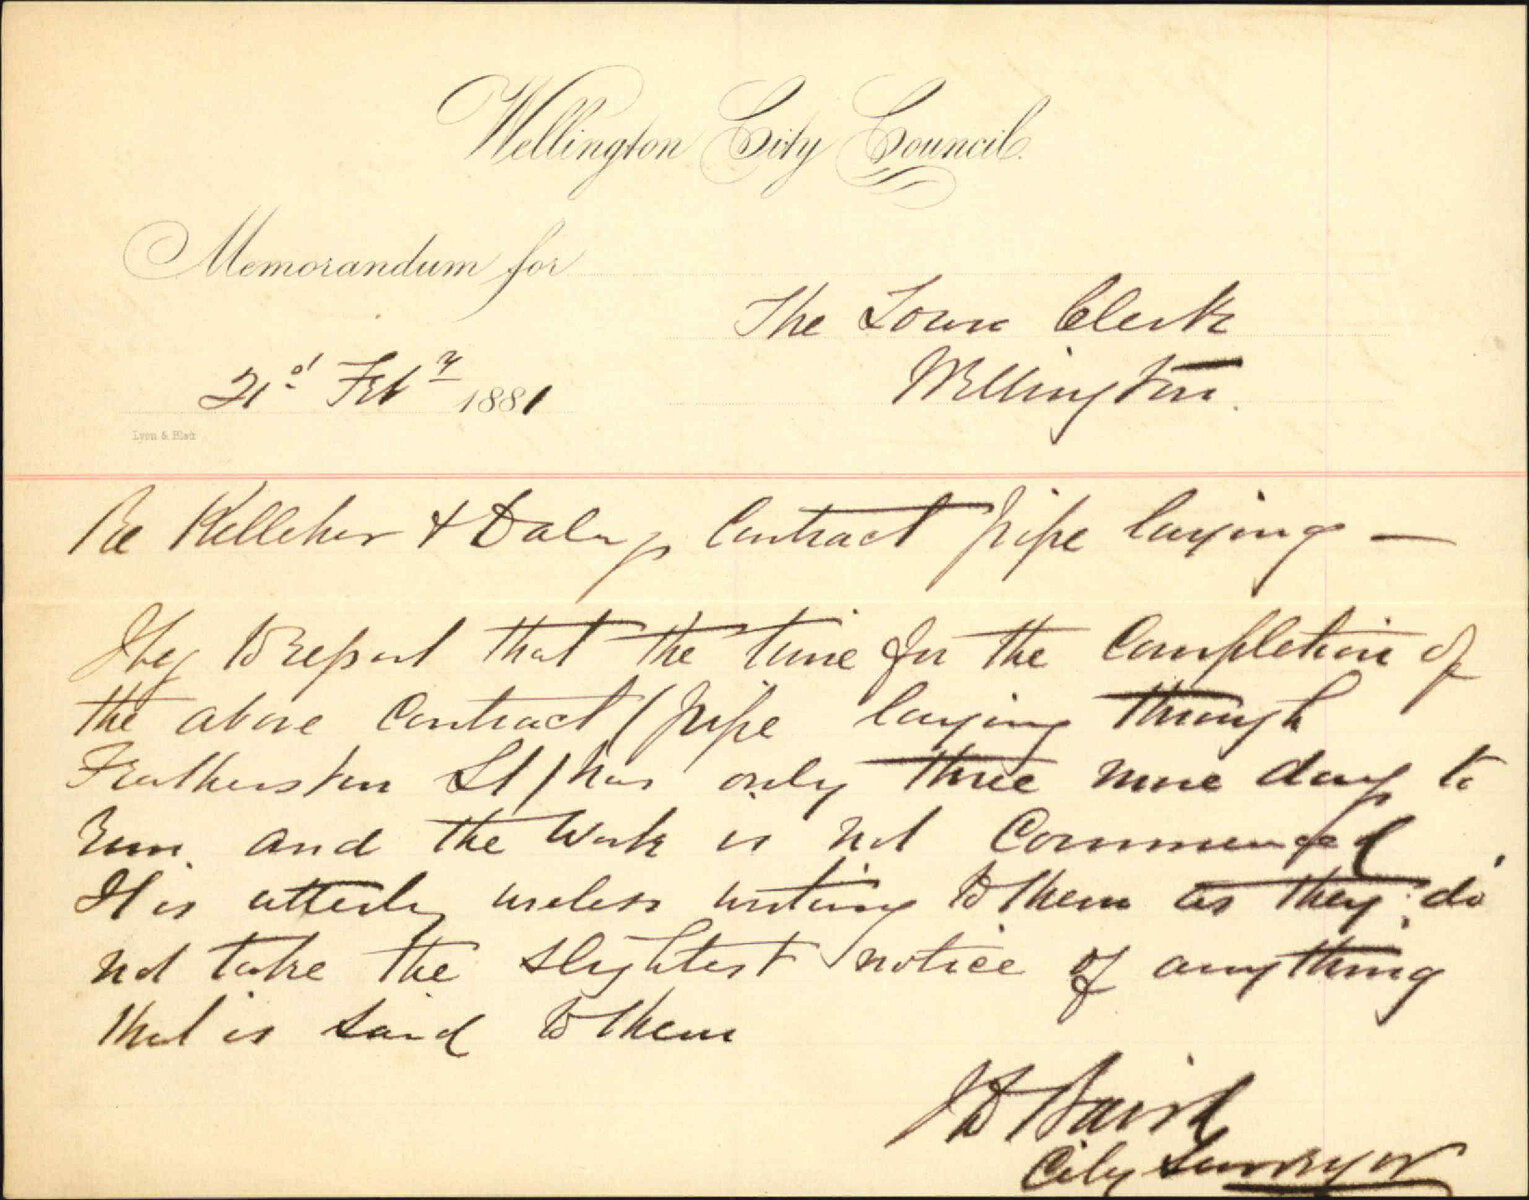 Wellington City Council.
Memorandum for
The Town Clerk
Wellington.
21st Feby 1881
Lyon & Blair
Re Kelleher & Dalys Contract pipe laying —
I beg to report that the time for the Completion of
the above Contract (pipe laying through
Featherston St) has only three more days to
run. and the work is not Commenced
It is utterly useless writing to them as they do
not take the slightest notice of anything
that is said to them
J D Baird
City Surveyor